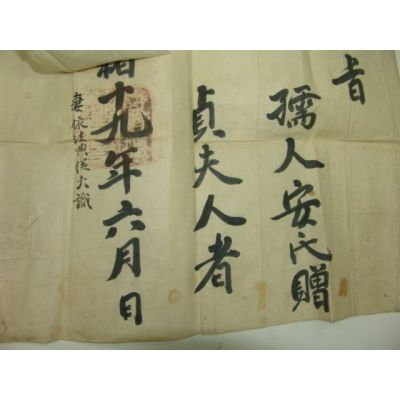 旨
孺人安氏贈
貞夫人者
緖十九年六月日
妻依法典從夫職